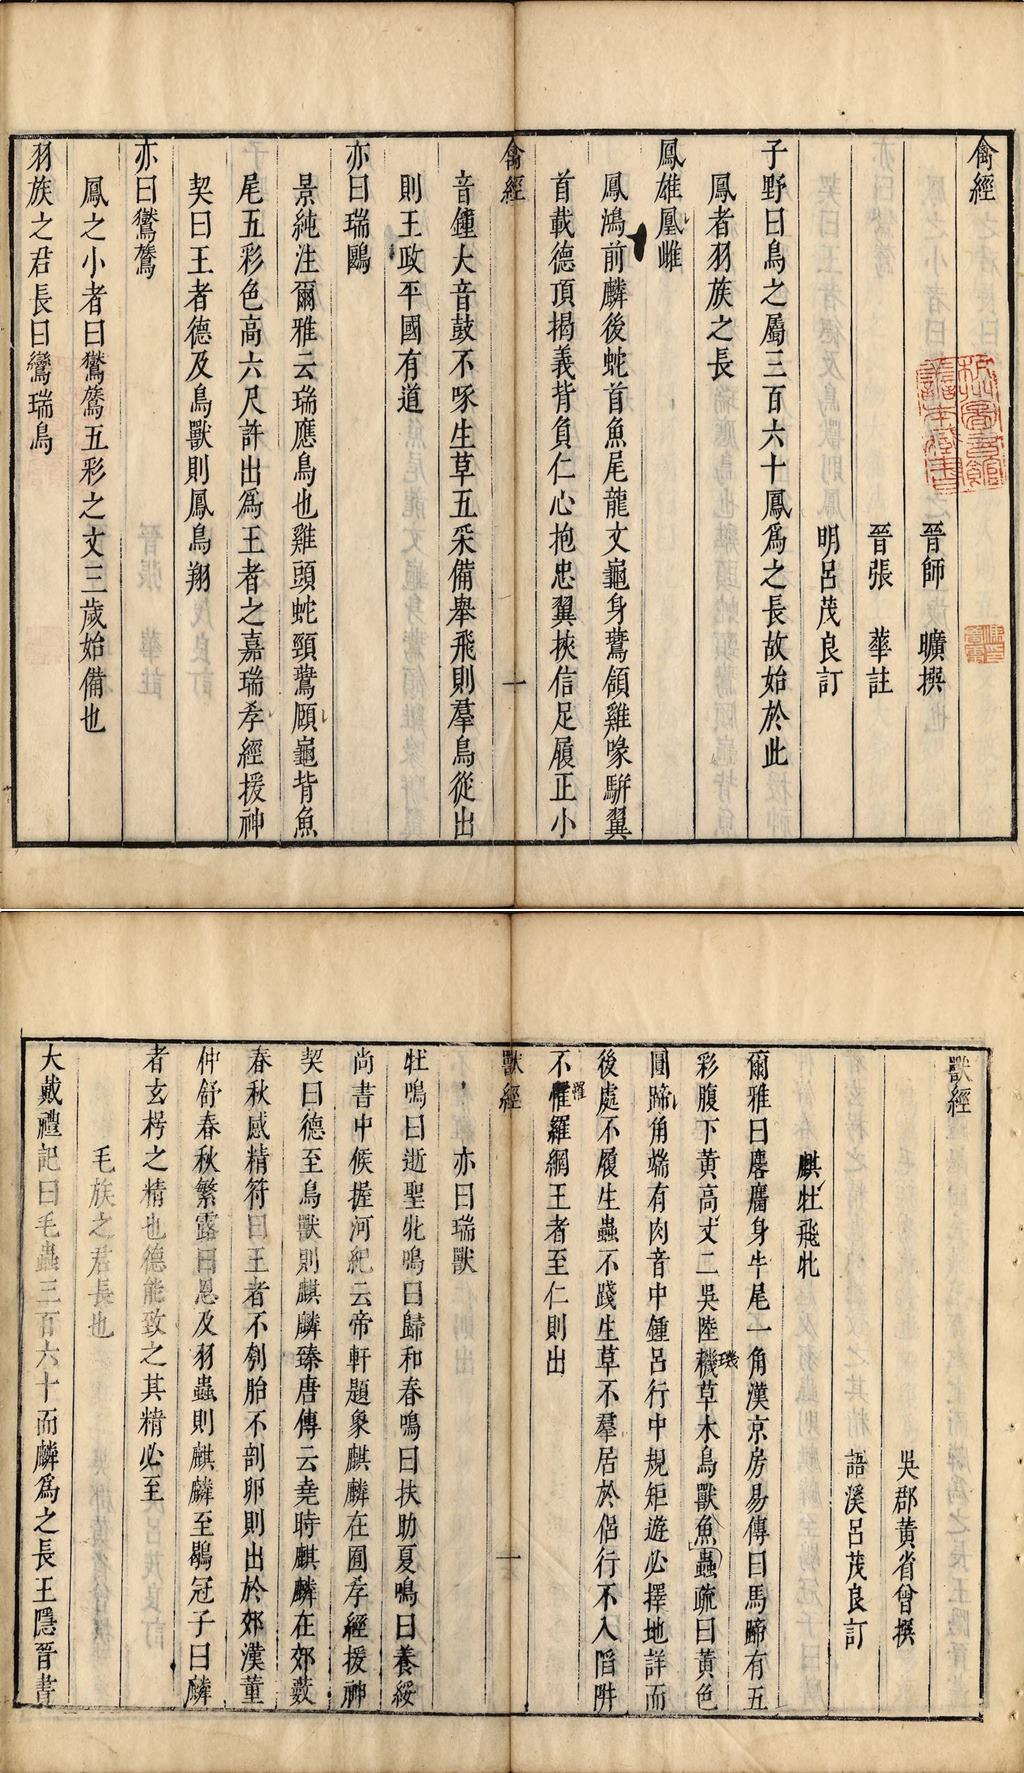 禽經
晉師　曠撰
晉張　華註
明呂茂良訂
子野曰鳥之屬三百六十鳳爲之長故始於此
鳳者羽族之長
鳳雄凰雌
鳳鴻前麟後蛇首魚尾龍文龜身鷰頷雞喙騈翼
首載德頂揭義背負仁心抱忠翼挾信足履正小
禽經
一
音鍾大音鼓不啄生草五采備舉飛則羣鳥從出
則王政平國有道
亦曰瑞鶠
景純注爾雅云瑞應鳥也雞頭蛇頸鷰頤龜背魚
尾五彩色高六尺許出爲王者之嘉瑞孝經援神
契曰王者德及鳥獸則鳳鳥翔
亦曰鸑鷟
鳳之小者曰鸑鷟五彩之文三歲始備也
羽族之君長曰鸞瑞鳥
獸經
吳郡黃省曾撰
語溪呂茂良訂
麒牡飛牝
爾雅曰麐麕身牛尾一角漢京房易傳曰馬蹄有五
彩腹下黃高丈二吳陸機璣草木鳥獸魚蟲疏曰黃色
圓蹄角端有肉音中鍾呂行中規矩遊必擇地詳而
後處不履生蟲不踐生草不羣居於侶行不入陷阱
不罹羅網王者至仁則出
獸經
一
亦曰瑞獸
牡鳴曰逝聖牝鳴曰歸和春鳴曰扶助夏鳴曰養綏
尚書中候握河紀云帝軒題象麒麟在囿孝經援神
契曰德至鳥獸則麒麟臻唐傳云堯時麒麟在郊藪
春秋感精符曰王者不刳胎不剖卵則出於郊漢董
仲舒春秋繁露曰恩及羽蟲則麒麟至鶡冠子曰麟
者玄枵之精也德能致之其精必至
毛族之君長也
大戴禮記曰毛蟲三百六十而麟爲之長王隱晉書